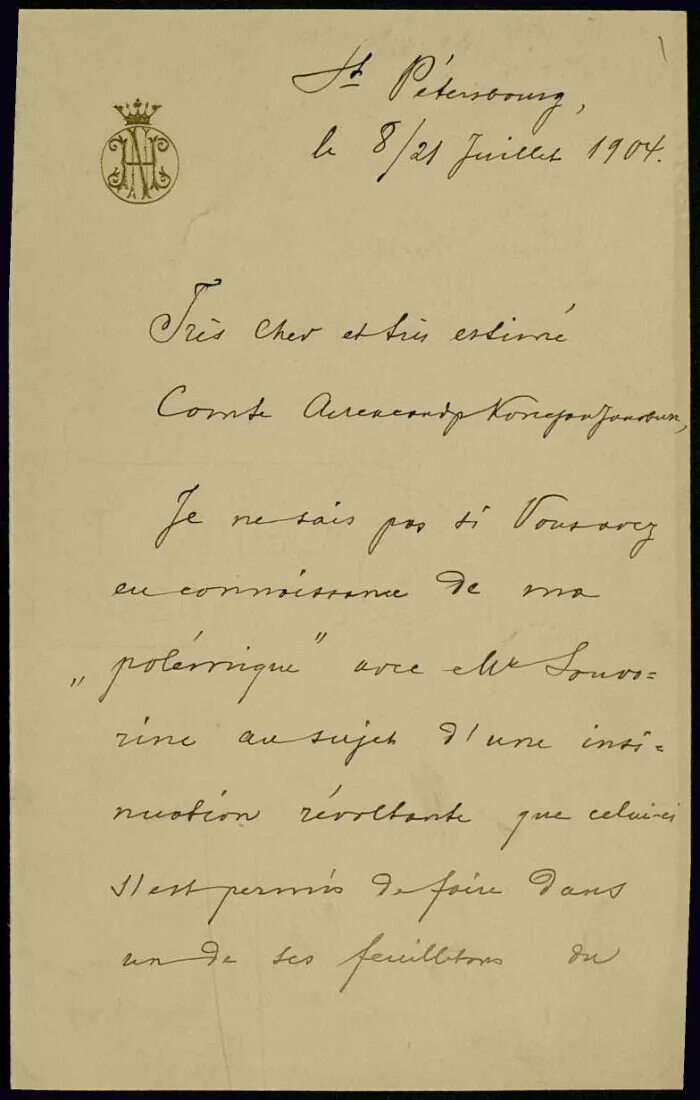 St Pétersbourg,
le 8/21 Juillet 1904.
Très cher et très estimé
Comte
Je ne sais pas si Vous avez
eu connaissance de ma
„polémique” avec Mr Souvo=
rine au sujet d'une insi=
nuation révoltante que celui-ci
s'est permis de faire dans
un de ses feuilletons du